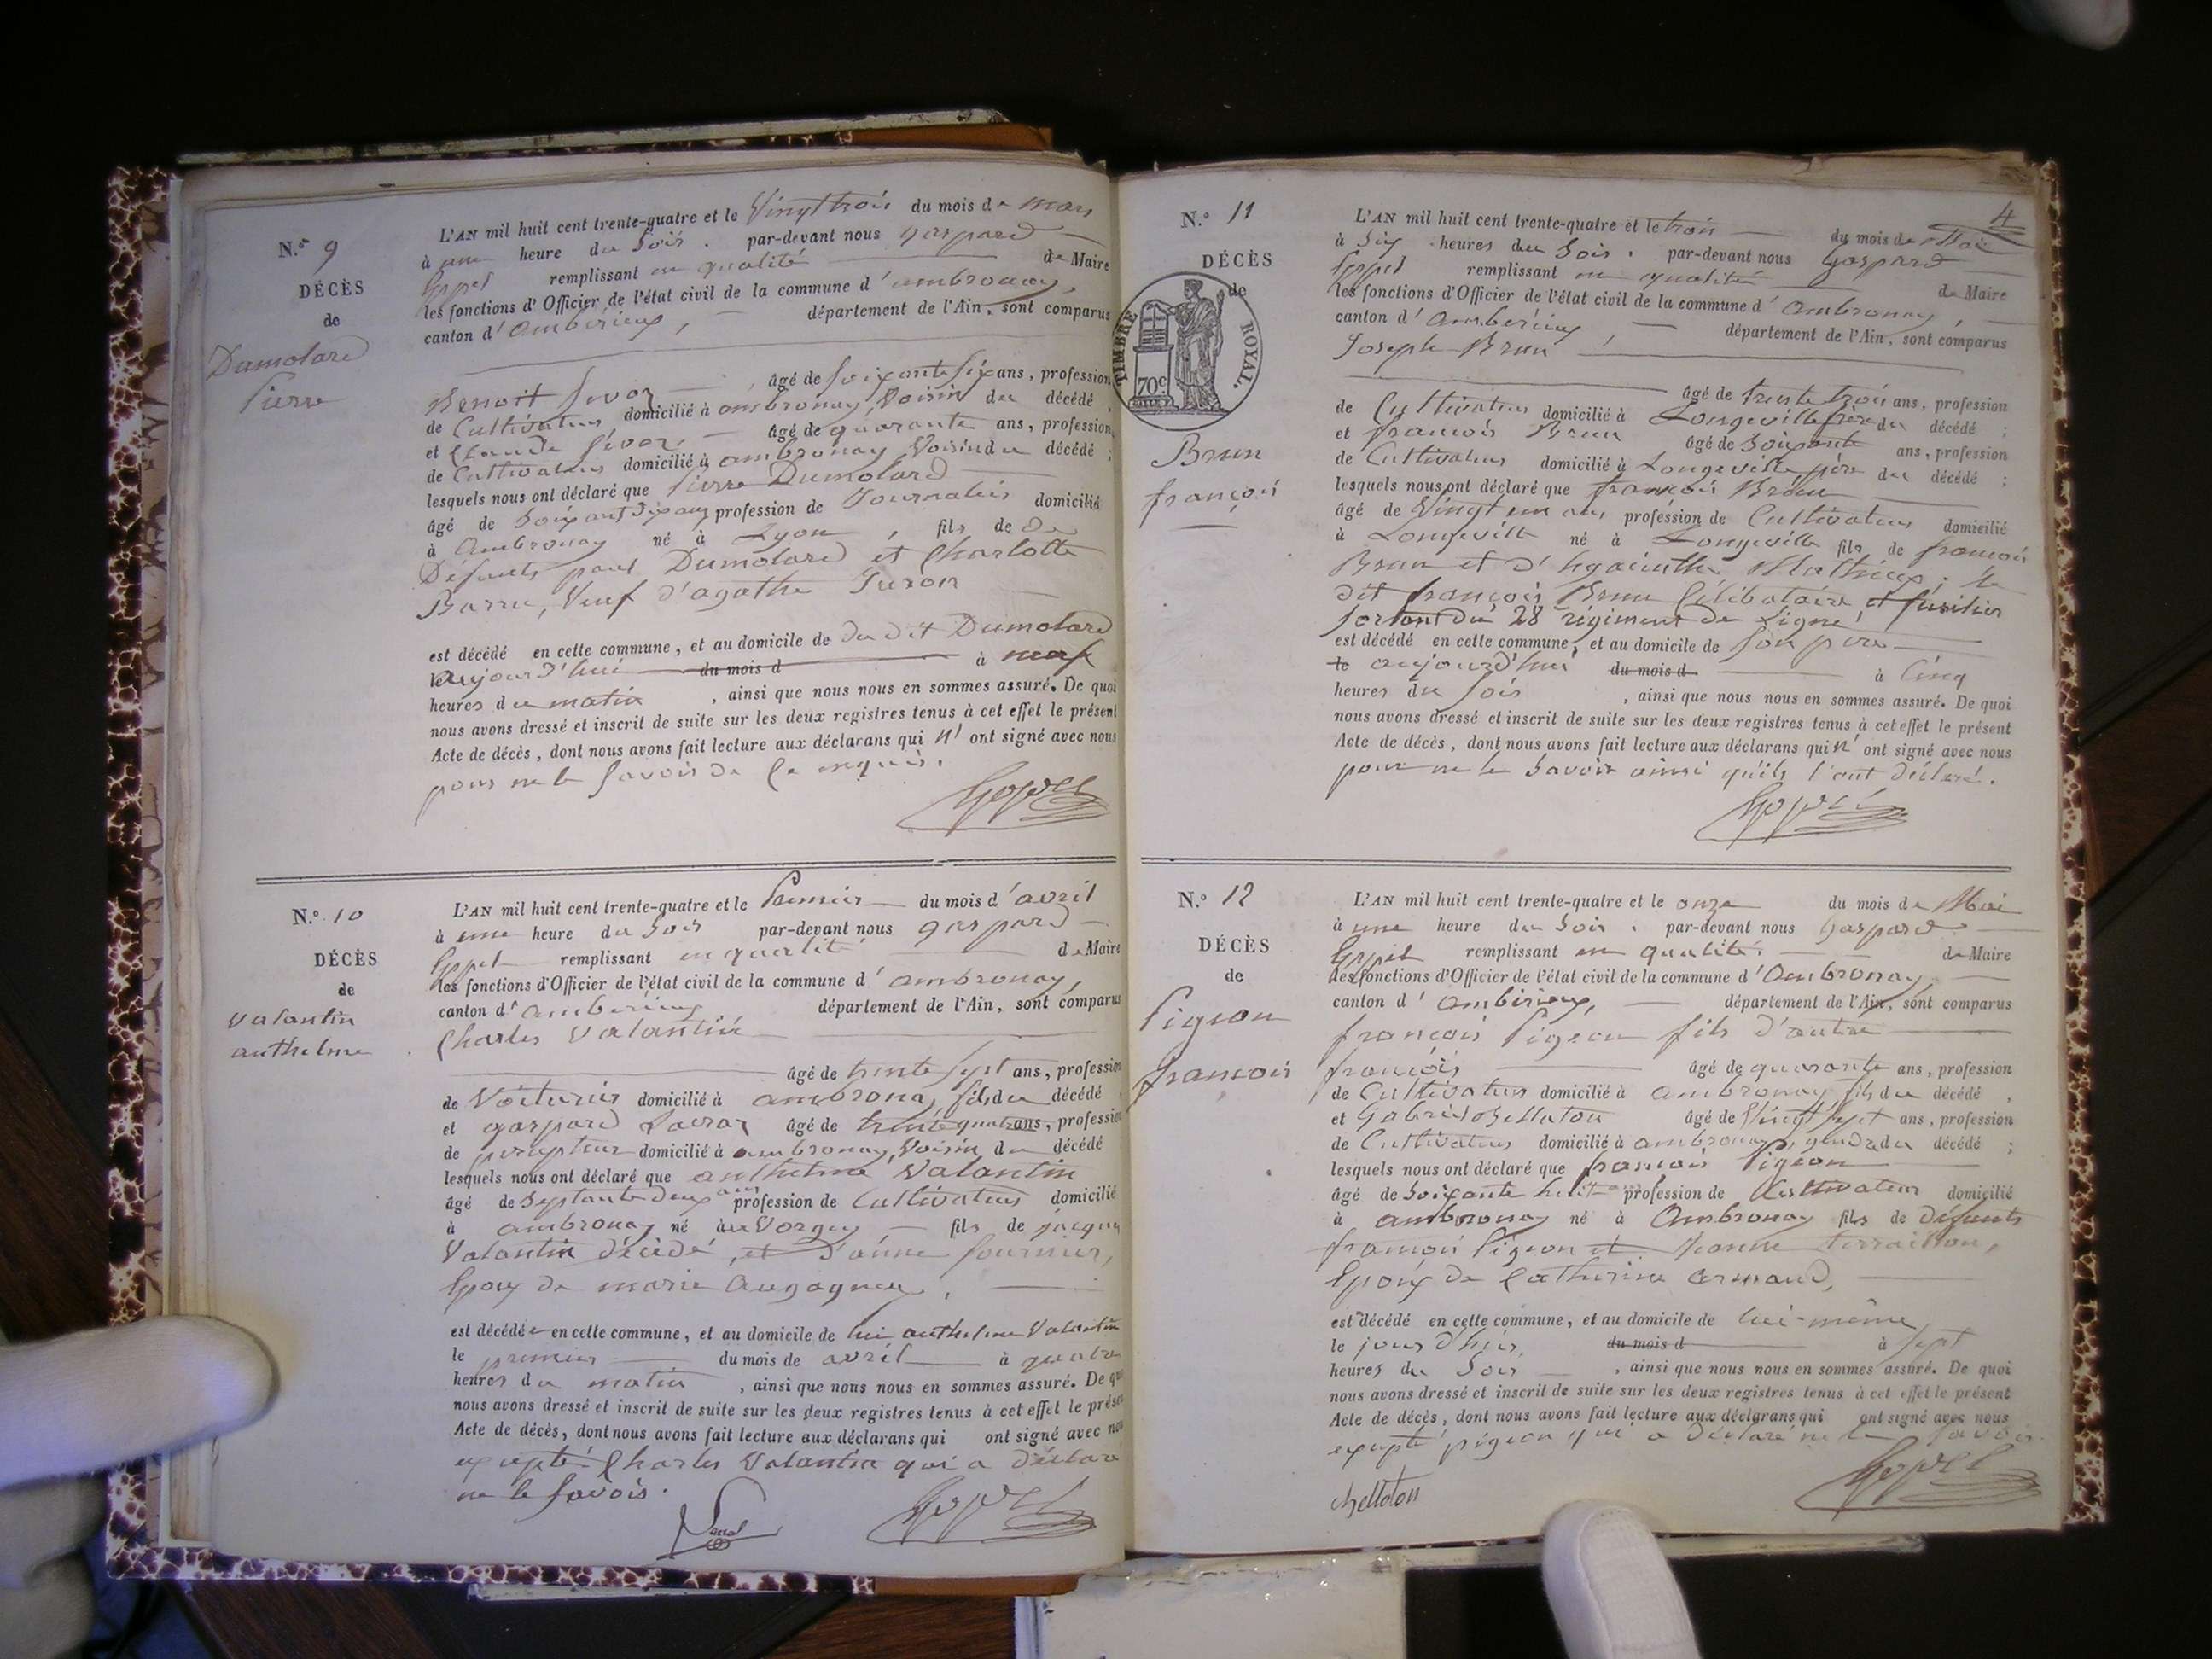 N.º 9
DÉCÈS
de
Dumolard
Pierre
L'AN mil huit cent trente-quatre et le Vingt trois du mois de mars
à une heure du Soir . par-devant nous gaspard
remplissant en qualité de Maire
les fonctions d'Officier de l'état civil de la commune d'ambronay,
canton d'Ambérieux, département de l'Ain, sont comparus
Benoit âgé de Soixante Six ans, profession
de Cultivateur, domicilié à ambronay, Voisin du décédé,
et Claude âgé de quarante ans, profession
de Cultivateur domicilié à ambronay Voisin du décédé ;
lesquels nous ont déclaré que Pierre Dumolard
âgé de Soixant dix ans, profession de Journalier domicilié
à Ambronay né à Lyon, fils de de
Défunts paul Dumolard et Charlotte
Barru, Veuf d'agathe
est décédé en cette commune, et au domicile de du dit Dumolard
le aujourd'hui du mois d à neuf
heures du matin , ainsi que nous nous en sommes assuré. De quoi
nous avons dressé et inscrit de suite sur les deux registres tenus à cet effet le présent
Acte de décès, dont nous avons fait lecture aux déclarans qui n'ont signé avec nous
pour ne le Savoir de ce requis.
N.º 10
DÉCÈS
de
Valantin
anthelme
L'AN mil huit cent trente-quatre et le Premier du mois d'avril
à une heure du Soir par-devant nous gaspard
remplissant en qualité de Maire
les fonctions d'Officier de l'état civil de la commune d'ambronay,
canton d'ambérieux département de l'Ain, sont comparus
Charles Valantin
âgé de trente Sept ans, profession
de Voiturier domicilié à ambronay fils du décédé
et gaspard âgé de trente quatre ans, profession
de percepteur domicilié à ambronay, Voisin du décédé
lesquels nous ont déclaré que anthelme Valantin
âgé de Septante deux ans profession de Cultivateur domicilié
à ambronay né au Vorgey fils de jacques
Valantin décédé, et d'anne fournier,
Epoux de marie Augagneu,
est décédé en cette commune, et au domicile de lui anthelme Valantin
le premier du mois de avril à quatre
heures du matin , ainsi que nous nous en sommes assuré. De quoi
nous avons dressé et inscrit de suite sur les deux registres tenus à cet effet le présent
Acte de décès, dont nous avons fait lecture aux déclarans qui ont signé avec nous
excepté Charles Valantin qui a déclaré
ne le Savoir.
4
N.º 11
DÉCÈS
de
TIMBRE ROYAL.
70c
Brun
françois
L'AN mil huit cent trente-quatre et le trois du mois de Mai
à Six heures du Soir . par-devant nous Gaspard
remplissant en qualité de Maire
les fonctions d'Officier de l'état civil de la commune d'Ambronay,
canton d'Ambérieux, département de l'Ain, sont comparus
Joseph Brun,
âgé de trente trois ans, profession
de Cultivateur domicilié à Longeville frère du décédé ;
et françois Brun âgé de Soixante ans, profession
de Cultivateur domicilié à Longeville père du décédé ;
lesquels nous ont déclaré que françois Brun
âgé de Vingt un ans profession de Cultivateur domicilié
à Longeville né à Longeville fils de françois
Brun et d'hyacinthe Mathieux; le
dit françois Brun Célibataire et fusilier
sortant du 28 régiment de Ligne,
est décédé en cette commune, et au domicile de Son père
le aujourd'hui du mois d à Cinq
heures du Soir , ainsi que nous nous en sommes assuré. De quoi
nous avons dressé et inscrit de suite sur les deux registres tenus à cet effet le présent
Acte de décès, dont nous avons fait lecture aux déclarans qui n'ont signé avec nous
pour ne le Savoir ainsi qu'ils l'ont déclaré.
N.º 12
DÉCÈS
de
Pigeon
françois
L'AN mil huit cent trente-quatre et le onze du mois de Mai
à une heure du Soir . par-devant nous Gaspard
remplissant en qualité de Maire
les fonctions d'Officier de l'état civil de la commune d'Ambronay,
canton d'ambérieux, département de l'Ain, sont comparus
françois Pigeon fils d'autre
françois âgé de quarante ans, profession
de Cultivateur domicilié à ambronay fils du décédé ,
et Gabriel Belloton âgé de Vingt Sept ans, profession
de Cultivateur domicilié à ambronay, gendre du décédé ;
lesquels nous ont déclaré que françois Pigeon
âgé de Soixante huit ans profession de Cultivateur domicilié
à ambronay né à Ambronay fils de Défunts
françois Pigeon et Jeanne terraillon,
Epoux de Catherine armand,
est décédé en cette commune, et au domicile de lui-même
le jour d'hier, du mois d à Sept
heures du Soir , ainsi que nous nous en sommes assuré. De quoi
nous avons dressé et inscrit de suite sur les deux registres tenus à cet effet le présent
Acte de décès, dont nous avons fait lecture aux déclarans qui ont signé avec nous
excepté pigeon qui a déclaré ne le Savoir